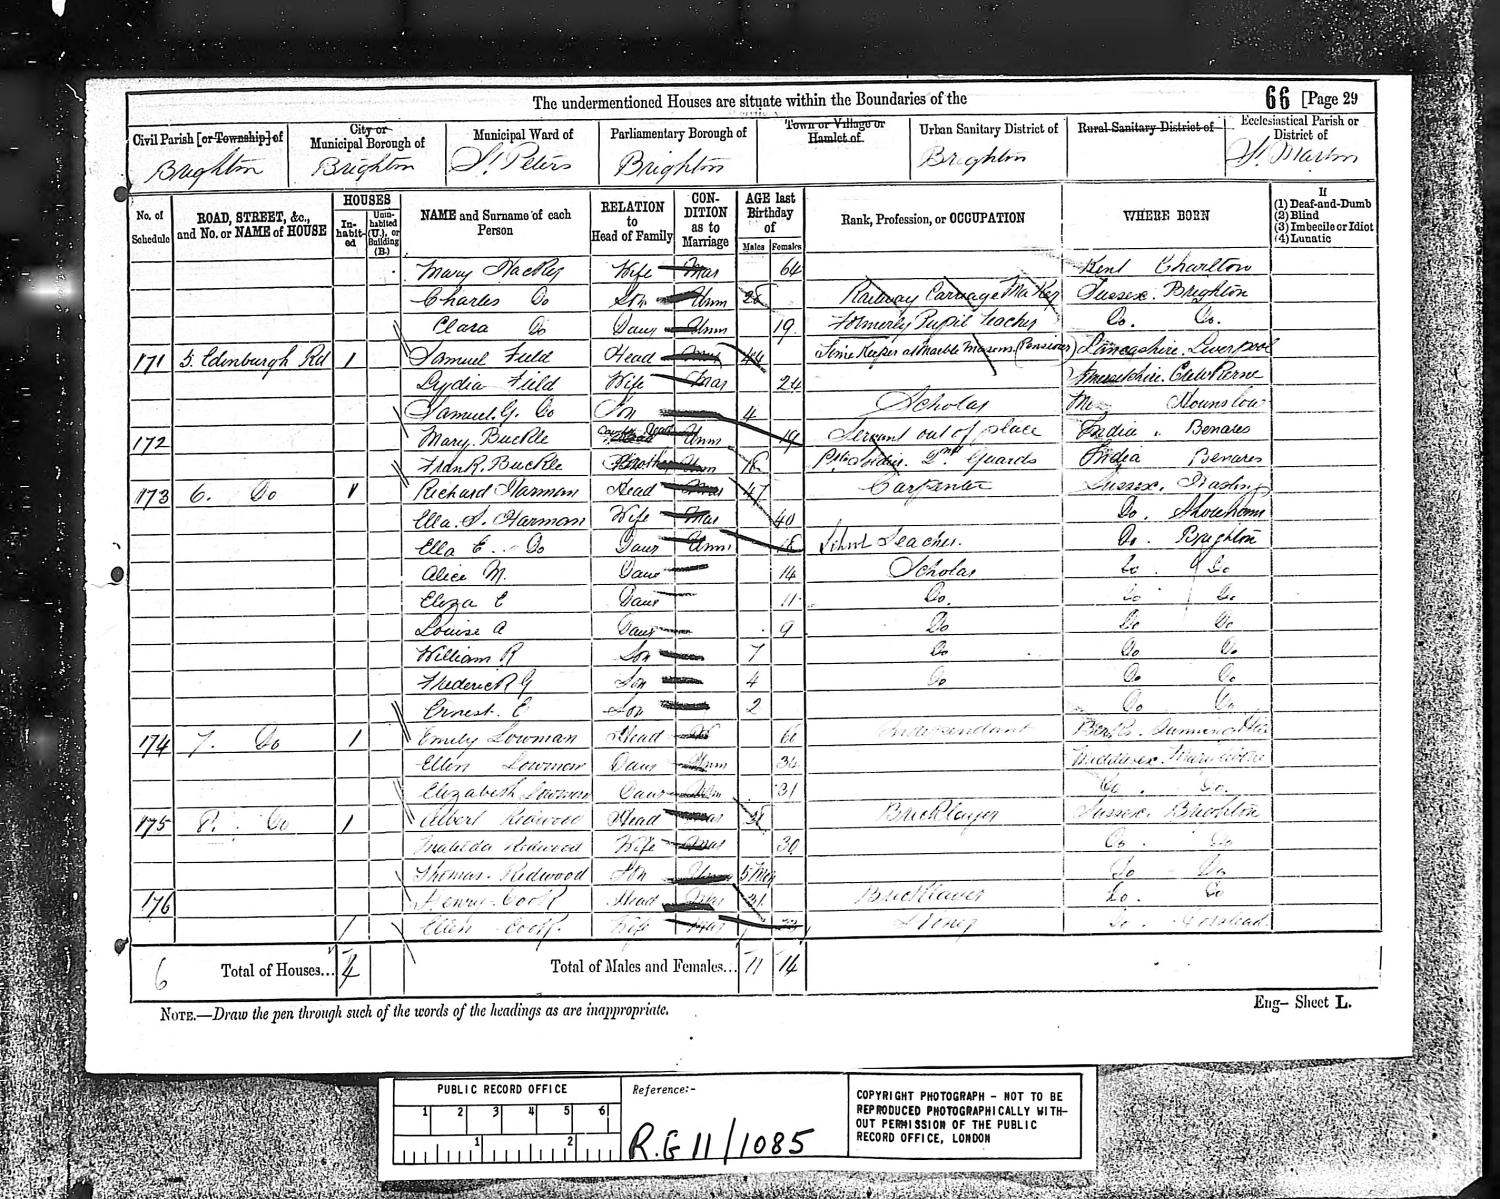 The undermentioned Houses are situate within the Boundaries of the
66 [Page 29
Civil Parish [or Township] of
Brighton
City or Municipal Borough of
Brighton
Municipal Ward of
St. Peters
Parliamentary Borough of
Brighton
Town or Village or Hamlet of
Urban Sanitary District of
Brighton
Rural Sanitary District of
Ecclesiastical Parish or District of
St. Martin
No. of Schedule
ROAD, STREET, &c., and No. or NAME of HOUSE
HOUSES
Inhabited
Uninhabited (U.), or Building (B.)
NAME and Surname of each Person
RELATION to Head of Family
CONDITION as to Marriage
AGE last Birthday of
Males Females
Rank, Profession, or OCCUPATION
WHERE BORN
If
(1) Deaf-and-Dumb
(2) Blind
(3) Imbecile or Idiot
(4) Lunatic
Mary Wife Mar 64 Kent Charlton
Charles Do Son Unm 28 Railway Carriage Maker Sussex. Brighton
Clara Do Daur Unm 19 Formerly Pupil Teacher Do. Do.
171 5. Edenburgh Rd 1 Samuel Field Head Mar 44 Time Keeper at Marble Masons (Pensioner) Lancashire. Liverpool
Lydia Field Wife Mar 24
Samuel. G. Do Son 4 Scholar Hounslow
172 Mary. Buckle Unm 19 Servant out of place India. Benares
Frank. Buckle Brother Unm 18 Guards India Benares
173 6. Do 1 Richard Harman Head Mar 47 Carpenter Sussex. Hastings
Ella. S. Harman Wife Mar 40 Do. Shoreham
Ella E. Do Daur Unm 18 School Teacher. Do. Brighton
Alice M. Daur 14 Scholar Do. Do
Eliza E Daur 11 Do. Do Do
Louise A Daur 9 Do Do Do
William R Son 7 Do Do Do.
Frederick G Son 4 Do Do Do
Ernest. E Son 2 Do Do
174 7. Do 1 Emily Lowman Head Independant Berks.
Ellen Lowman Daur Unm 34 Middlesex. Marylebone
Elizabeth Lowman Daur Unm 31 Do. Do.
175 8. Do 1 Albert Redwood Head Mar Bricklayer Sussex. Brighton
Matilda Redwood Wife Mar 30 Do. Do
Thomas. Redwood Son 5 Do Do
176 Henry Cook Head Mar 31 Bricklayer Do. Do
1 Ellen Cook. Wife Mar Do.
6 Total of Houses... 4 Total of Males and Females... 11 14
NOTE.—Draw the pen through such of the words of the headings as are inappropriate.
Eng- Sheet L.
PUBLIC RECORD OFFICE
1 2 3 4 5 6
1 2
Reference:-
R.G 11/1085
COPYRIGHT PHOTOGRAPH - NOT TO BE
REPRODUCED PHOTOGRAPHICALLY WITH-
OUT PERMISSION OF THE PUBLIC
RECORD OFFICE, LONDON